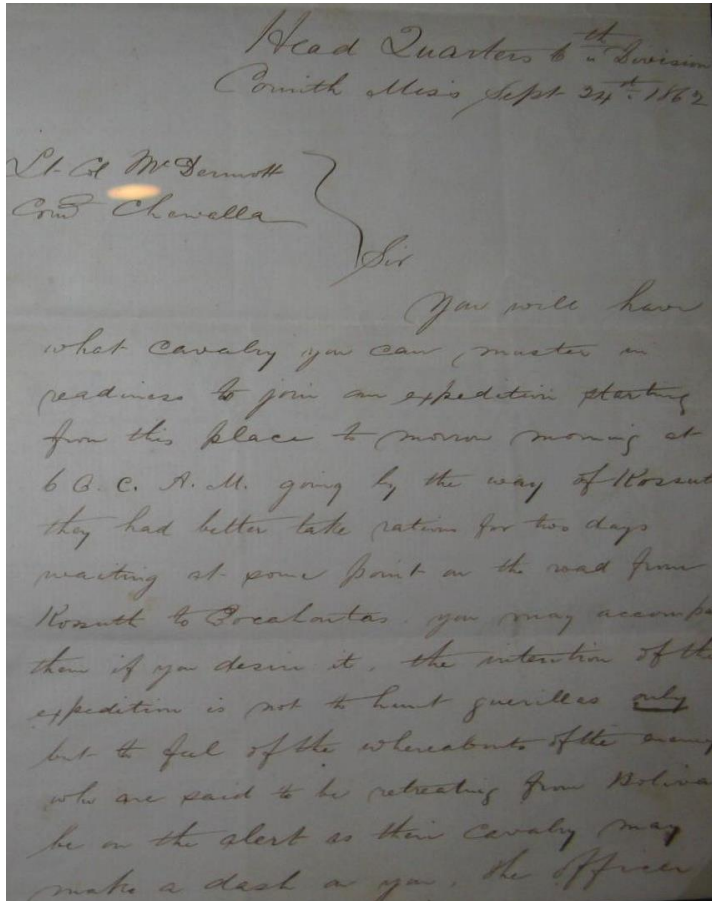 Head Quarters 6th Division
Corinth Miss Sept 24th 1862
Lt. Col McDermott
Comd Chewalla
Sir
You will have
what cavalry you can muster in
readiness to join an expedition starting
from this place to morrow morning at
6 O. C. A. M. going by the way of Kossut
they had better take rations for two days
waiting at some point on the road from
Kossuth to Pocahontas. you may accompa
them if you desire it. the intention of the
expedition is not to hunt guerillas only
but to feel of the whereabouts of the enemy
who are said to be retreating from Boliva
be on the alert as their cavalry may
make a dash on you. the officer